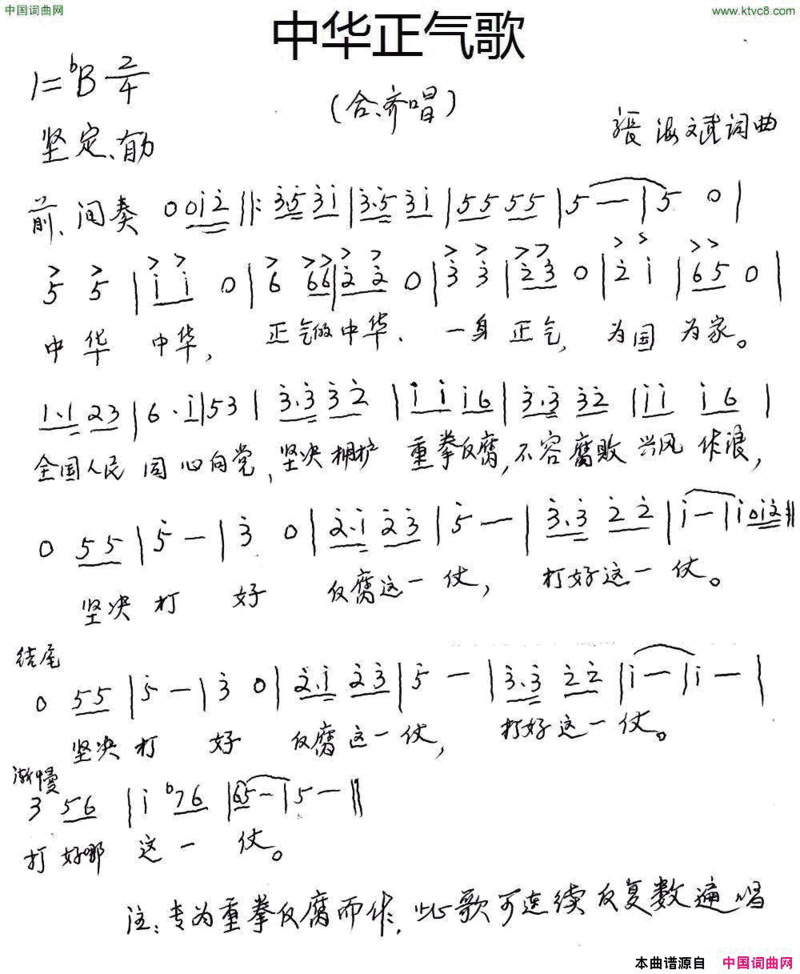 中国词曲网
www.ktvc8.com
中华正气歌
1=ᵇB 2/4
（合、齐唱）
坚定、有力
張海斌词曲
前、间奏 0 0i̇2̇ ‖: 3̇·5̇ 3̇i̇ | 3̇·5̇ 3̇i̇ | 55 55 | 5 — | 5 0 |
5 5 | i̇ i̇ 0 | 6 66 | 2̇ 2̇ 0 | 3̇ 3̇ | 2̇3̇ 0 | 2̇ i̇ | 65 0 |
中华 中华， 正气的中华． 一身正气， 为国为家。
1·1 23 | 6·i̇ | 53 | 3̇·3̇ 3̇2̇ | i̇ i̇ i̇6 | 3̇·3̇ 3̇2̇ | i̇i̇ i̇6 |
全国人民 同心向党，坚决拥护 重拳反腐，不容腐败 兴风作浪，
0 55 | 5̇ — | 3̇ 0 | 2̇·i̇ 2̇3̇ | 5̇ — | 3̇·3̇ 2̇2̇ | i̇ — | i̇ 0i̇2̇ :‖
坚决打 好 反腐这一仗， 打好这一仗。
结尾
0 55 | 5̇ — | 3̇ 0 | 2̇·i̇ 2̇3̇ | 5̇ — | 3̇·3̇ 2̇2̇ | i̇ — | i̇ — |
坚决打 好 反腐这一仗， 打好这一仗。
渐慢
3 56 | i̇ ᵇ76 | 65 — | 5 — ‖
打好哪 这一 仗。
注：专为重拳反腐而作，此歌可连续反复数遍唱
本曲谱源自 中国词曲网